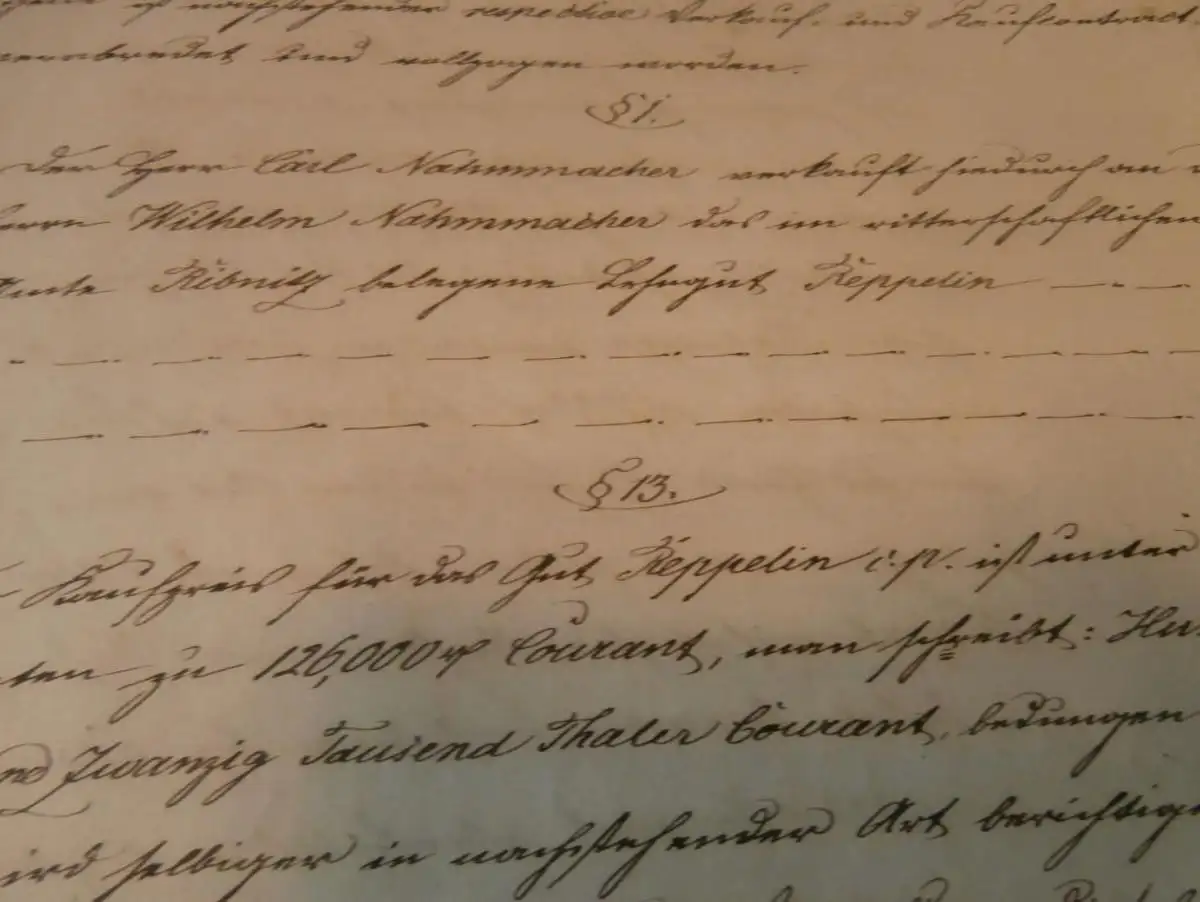 ist nachstehender respective Verkauf- und Kaufcontract
verabredet und vollzogen worden.
§ 1.
Der Herr Carl Nahmmacher verkauft hiedurch an
Herrn Wilhelm Nahmmacher das im ritterschaftlichen
Amte Ribnitz belegene Lehngut Reppelin — — —
— — — — — — — — — — — — —
— — — — — — — — — — — —
§ 13.
Kaufpreis für das Gut Reppelin c. p. ist unter
ten zu 126,000 rℓ Courant, man schreibt: Hu
nd Zwanzig Tausend Thaler Courant, bedungen
ird selbiger in nachstehender Art berichtig